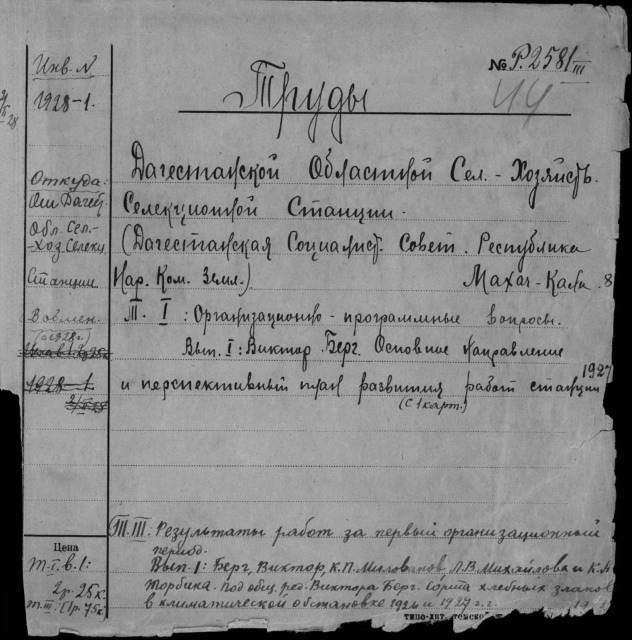 № Р.2581/III
44
Труды
Инв. №
1928-1.
Откуда:
Обл. Сел.-
Хоз. Селекц
Станции
В обмен.
1928-1.
Дагестанской Областной Сел.-Хозяйств.
Селекционной Станции.
(Дагестанская Социалист. Совет. Республика
Нар. Ком. Земл.) Махач-Кала. 8
Т. I: Организационно-программные вопросы.
Вып. I: Виктор Берг. Основное направление
и перспективный план развития работ станции 1927
(с 1 карт.)
Т. III: Результаты работ за первый организационный
период.
Вып. I: Берг, Виктор, К.П. Милованов, Л.В. Михайлова и К.
Торбика. Под общ. ред. Виктора Берг. Сорта хлебных злаков
в климатической обстановке 1926 и 1927 г.г.
Цена
т. I. в. 1:
2 р. 25 к.
т. III. 1 р. 75 к.